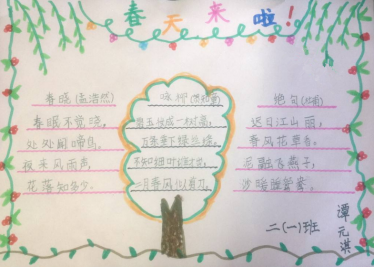 春天来啦！
春晓(孟浩然)
春眠不觉晓，
处处闻啼鸟，
夜来风雨声，
花落知多少。
咏柳(贺知章)
碧玉妆成一树高，
万条垂下绿丝绦。
不知细叶谁裁出，
二月春风似剪刀。
绝句(杜甫)
迟日江山丽，
春风花草香。
泥融飞燕子，
沙暖睡鸳鸯。
二(一)班
谭元淇